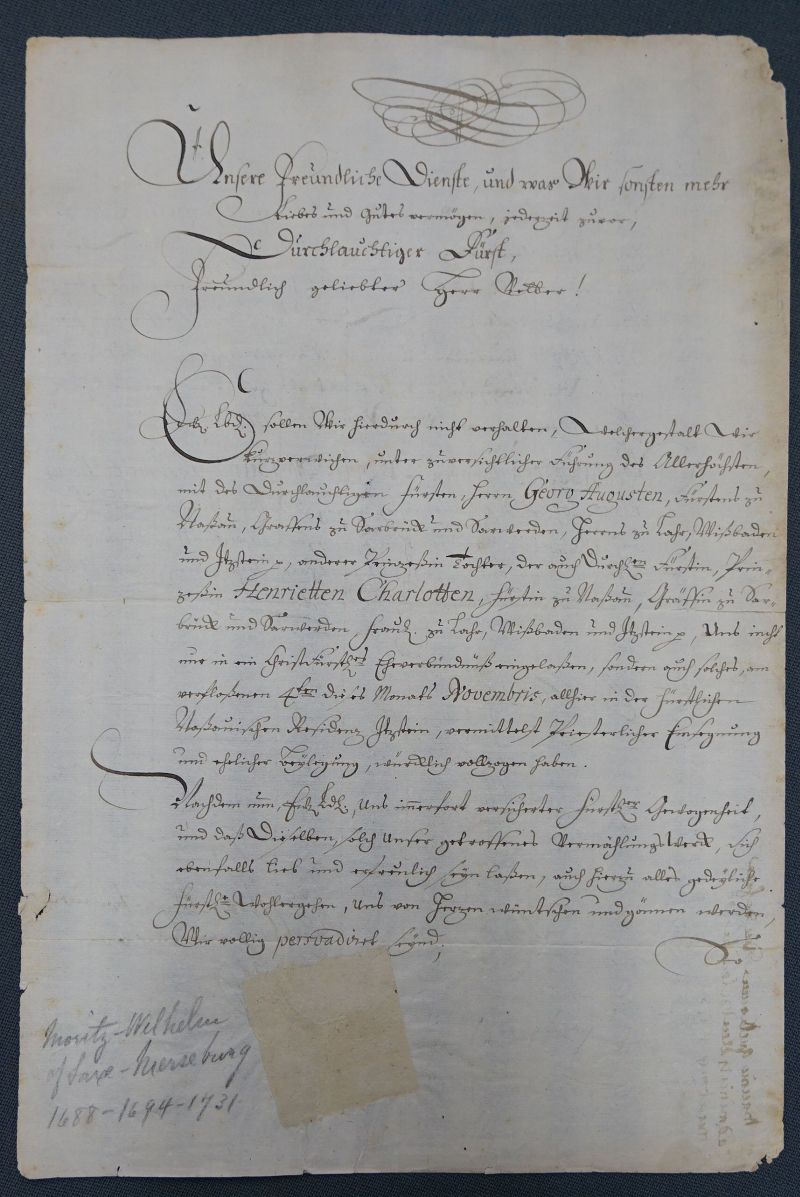 Unsere Freundliche Dienste, und was Wir sonsten mehr
Liebes und Gutes vermögen, jederzeit zuvor,
Durchlauchtiger Fürst,
Freundlich geliebter Herr Vetter!
Ew. Lbd. sollen Wir hierdurch nicht verhalten, Welchergestalt Wir
kurzverwichen, unter zuversichtlicher Führung des Allerhöchsten,
mit des Durchlauchtigen Fürsten, Herrn Georg Augusten, Fürstens zu
Naßau, Graffens zu Sarbrück und Sarwerden, Herrns zu Lahr, Wißbaden
und Itzstein p, anderer Prinzeßin Tochter, der auch Durchl.en Fürstin, Prin-
zeßin Henrietten Charlotten, Fürstin zu Naßau, Gräffin zu Sar-
brück und Sarwerden Fraul. zu Lahr, Wißbaden und Itzstein p, Uns nicht
nur in ein Christfürstl.es Eheverbündnüß eingelaßen, sondern auch solches, am
verfloßenen 4ten dieses Monats Novembris, allhier in der Fürstlichen
Naßauischen Residenz Itzstein, vermittelst Priesterlicher Einsegnung
und ehelicher Beylegung, würcklich vollzogen haben.
Nachdem nun, Ew. Lbd. Uns immerfort versicherter Fürstl.er Gewogenheit,
und daß Dieselben, solch Unser getroffenes Vermählungs Werck, Sich
ebenfalls lieb und erfreulich seyn laßen, auch hierzu alles gedeyliche
Fürstl.e Wohlergehen, Uns von Herzen wüntschen und gönnen werden,
Wir völlig persvadiret seynd;
So
Moritz-Wilhelm
of Saxe-Merseburg
1688-1694-1731